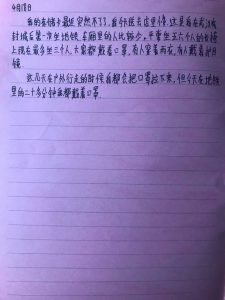 4月18日
我的存储卡最近突然不了,自今班去店里修.这是我在武汉
封城后第一次坐地铁,车厢里的人比较少,平常坐五六个人的长椅
上现在最多坐三个人.大家都戴着口罩,有人穿着雨衣,有人戴着护目
镜.
这几天在户外行走的时候我都会把口罩拉下来,但今天在地铁
里的二十多分钟我都戴着口罩.